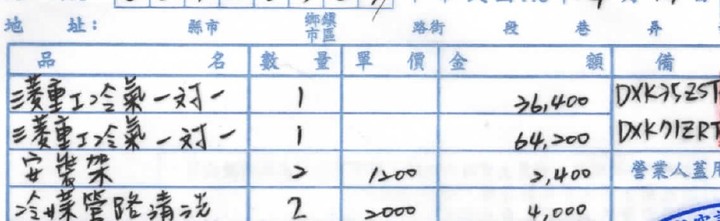 地 址： 縣市 鄉鎮市區 路街 段 巷 弄
品 名 數 量 單 價 金 額 備
三菱重工冷氣一対一 1 36,400 DXK35ZST
三菱重工冷氣一対一 1 64,200 DXK71ZRT
安裝架 2 1200 2,400 營業人蓋用
冷媒管路清洗 2 2000 4,000